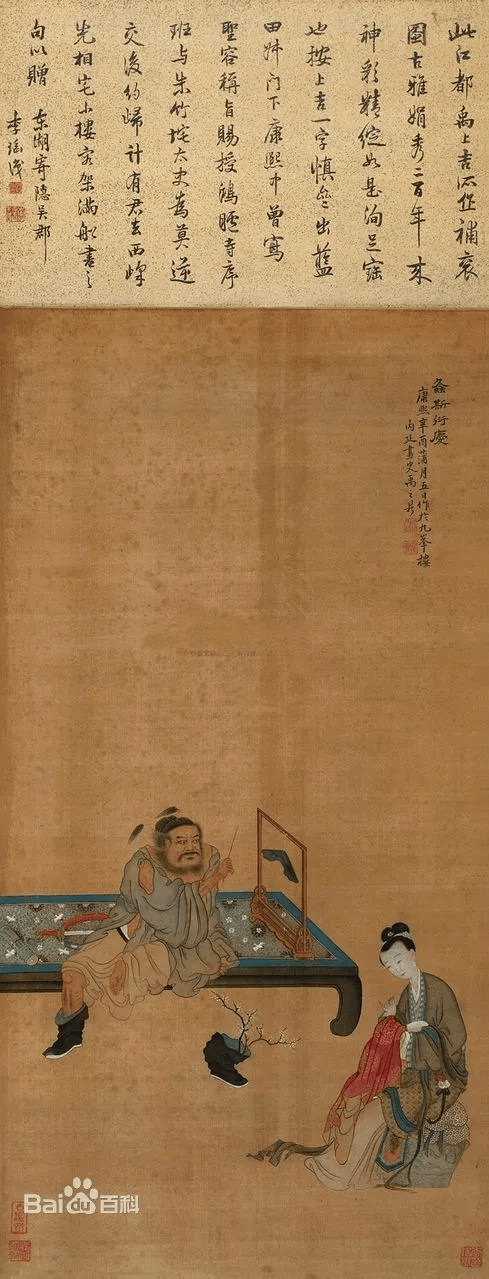 此江都禹上吉所作補袞
圖古雅娟秀二百年來
神彩精綻如是洵足寶
也按上吉一字慎斎出藍
田叔门下康熙中曾寫
聖容稱旨賜授鴻臚寺序
班与朱竹垞太史為莫逆
交後约歸計有君去西峰
先相宅小樓容架滿船書之
句以贈 東湖寄隐吴郡
李瑶識
螽斯衍慶
康熙辛酉蒲月五日作於九峯樓
内廷畫史禹之鼎
Baidu百科